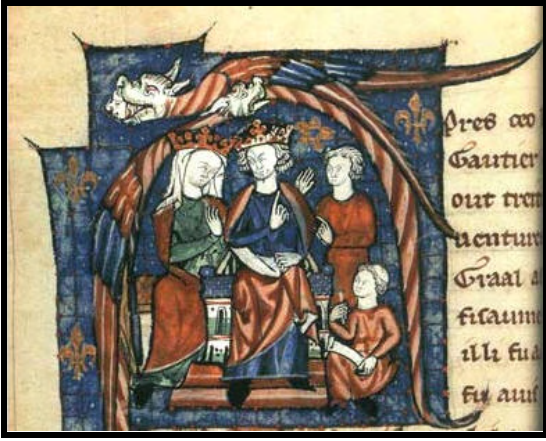 pres ceo
Gautier
out tren
uenture
Graal a
fisaume
illi fu a
fu auis